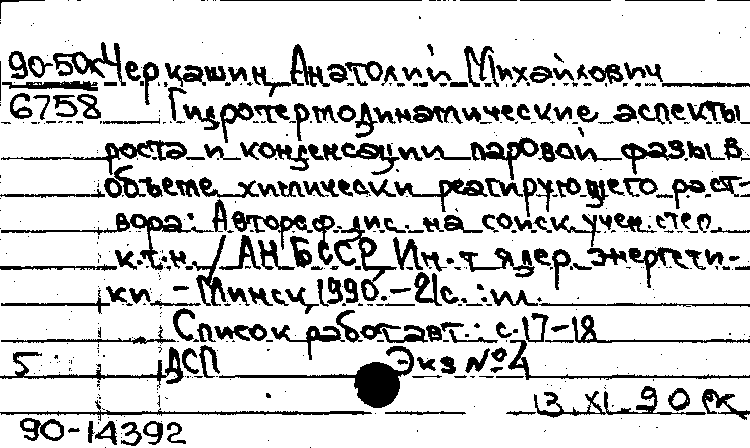 90-50к Черкашин, Анатолий Михайлович
6758 Гидротермодинамические аспекты
роста и конденсации паровой фазы в
объеме химически реагирующего раст-
вора: Автореф. дис. на соиск. учен. степ.
к.т.н. / АН БССР Ин-т ядер. энергети-
ки. - Минск, 1990. - 21с. : ил.
Список работ авт.: с.17-18
5 ДСП Экз №4
13.XI.90
90-14392